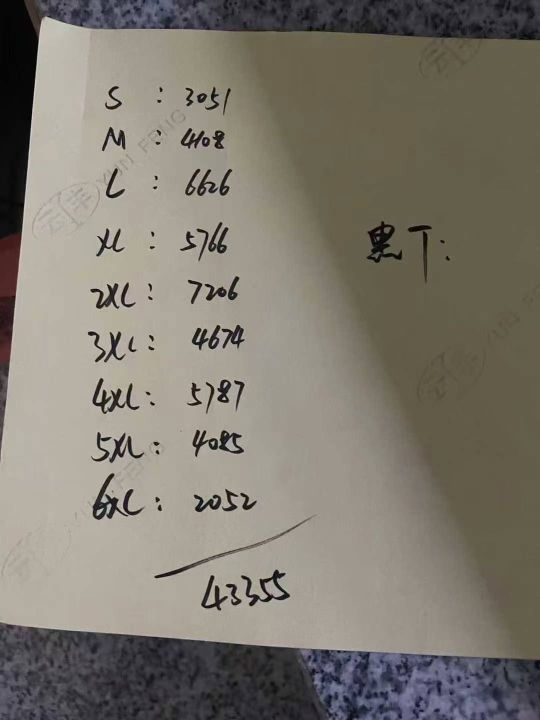 S : 3051
M : 4108
L : 6626
XL : 5766
黑T:
2XL : 7206
3XL : 4674
4XL : 5787
5XL : 4085
6XL : 2052
43355
云丰 XUN FENG